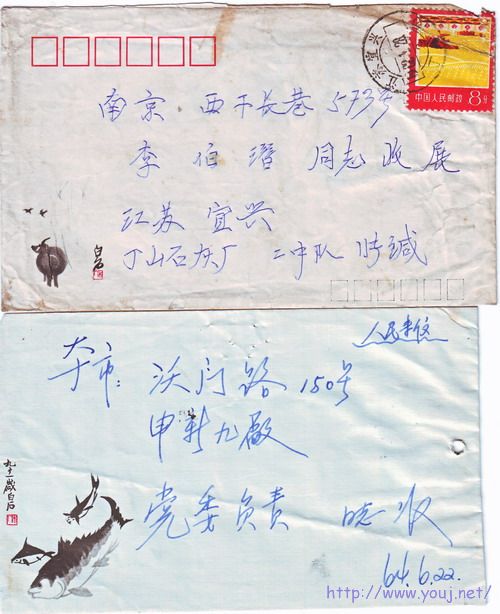 中国人民邮政 8分
江苏宜兴
南京 西干长巷 573号
李 伯 潛 同志 收 展
江苏 宜兴
丁山石灰厂 二中队  缄
白石
人民来信
本市: 沃门路 150号
申新九厰
党委负责 收
64.6.22.
九十一岁白石
http://www.youj.net/